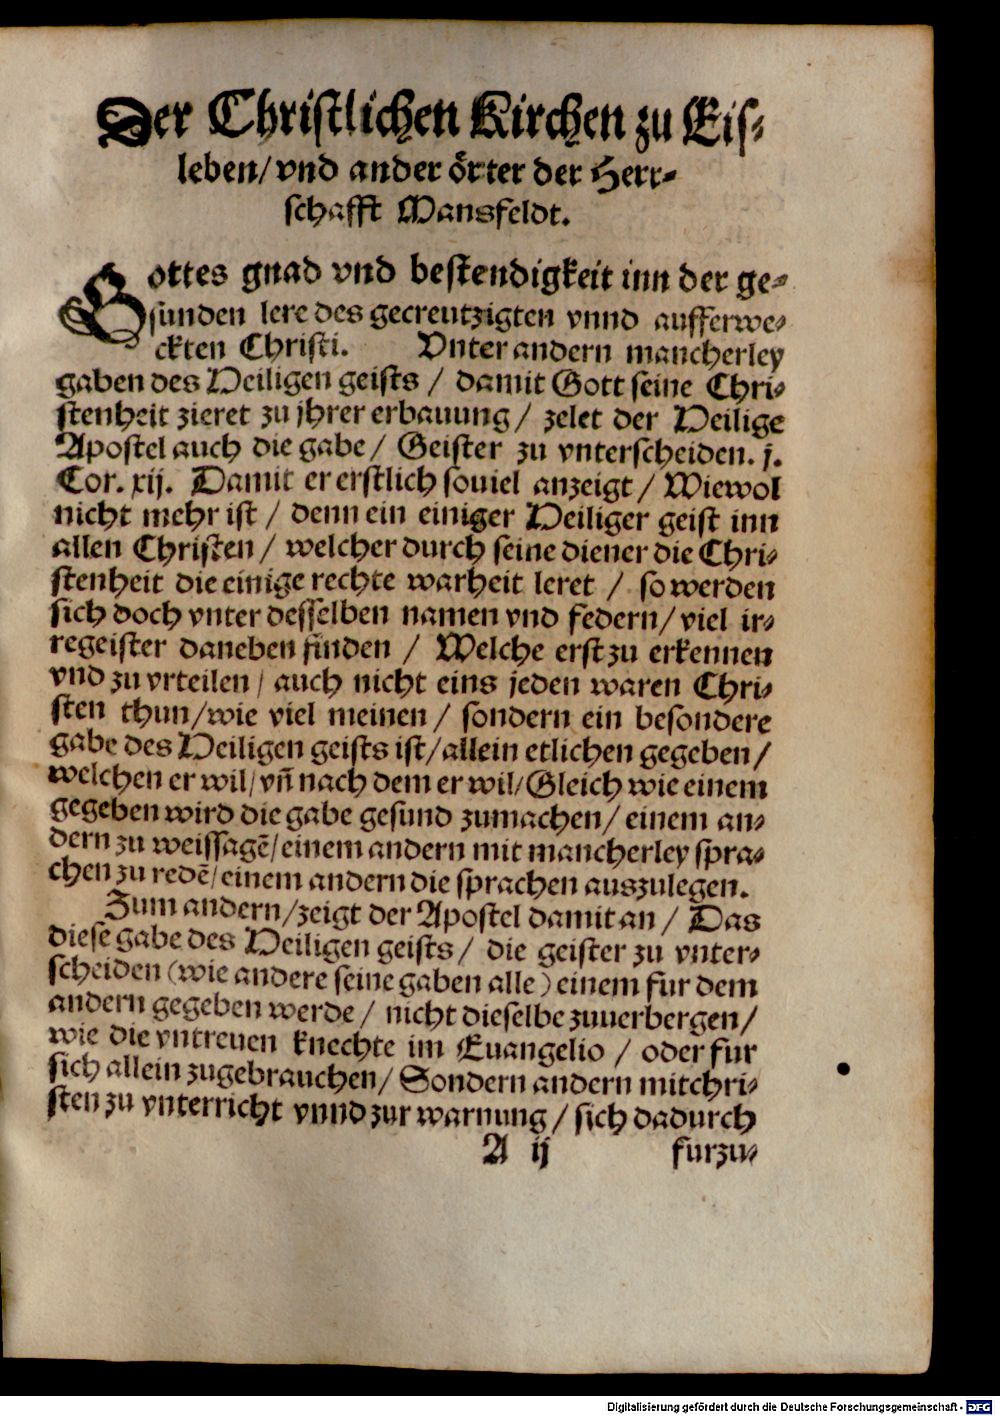 Der Christlichen Kirchen zu Eis-
leben/ vnd ander örter der Herr-
schafft Mansfeldt.
Gottes gnad vnd bestendigkeit inn der ge-
sunden lere des gecreutzigten vnnd aufferwe-
ckten Christi. Vnter andern mancherley
gaben des Heiligen geists / damit Gott seine Chri-
stenheit zieret zu jhrer erbauung / zelet der Heilige
Apostel auch die gabe / Geister zu vnterscheiden. j.
Cor. xij. Damit er erstlich souiel anzeigt / Wiewol
nicht mehr ist / denn ein einiger Heiliger geist inn
allen Christen / welcher durch seine diener die Chri-
stenheit die einige rechte warheit leret / so werden
sich doch vnter desselben namen vnd federn / viel ir-
regeister daneben finden / Welche erst zu erkennen
vnd zu vrteilen / auch nicht eins jeden waren Chri-
sten thun / wie viel meinen / sondern ein besondere
gabe des Heiligen geists ist / allein etlichen gegeben /
welchen er wil / vñ nach dem er wil / Gleich wie einem
gegeben wird die gabe gesund zumachen / einem an-
dern zu weissagē / einem andern mit mancherley spra-
chen zu redē / einem andern die sprachen auszulegen.
Zum andern / zeigt der Apostel damit an / Das
diese gabe des Heiligen geists / die geister zu vnter-
scheiden (wie andere seine gaben alle) einem fur dem
andern gegeben werde / nicht dieselbe zuuerbergen /
wie die vntreuen knechte im Euangelio / oder fur
sich allein zugebrauchen / Sondern andern mitchri-
sten zu vnterricht vnnd zur warnung / sich dadurch
A ij furzu-
Digitalisierung gefördert durch die Deutsche Forschungsgemeinschaft - DFG